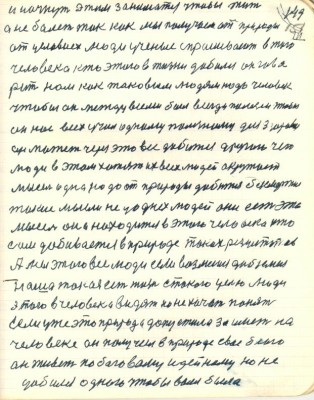 и начнут этим заниматся чтобы жит
а не болет так как мы получаем от природы
от условиех люди ученые спрашивают в того
человека кто этого в жизни добился он гово
рит нам как таковым людям надо человек
чтобы он между всеми был всегда полезн чтобы
он нас всех учил одному полезному для здоровя
он может через это все добится другим чем
люди в этом хотят их всех людей окружает
мысль одна надо от природы добится безсмертия
такие мысли не у одних людей они ест эта
мысль она находится в этого человека кто
сам добивается в природе таких результатов
А мы этого все люди если возмемся добьемся
Наша такая ест жизн с такого цель люди
этого в человека видят но не хочат понят
Если уже это природа допустила за ... на
человеке он получил в природе свое бело
он живет по боговому идейному но не
добился одного чтобы воля была